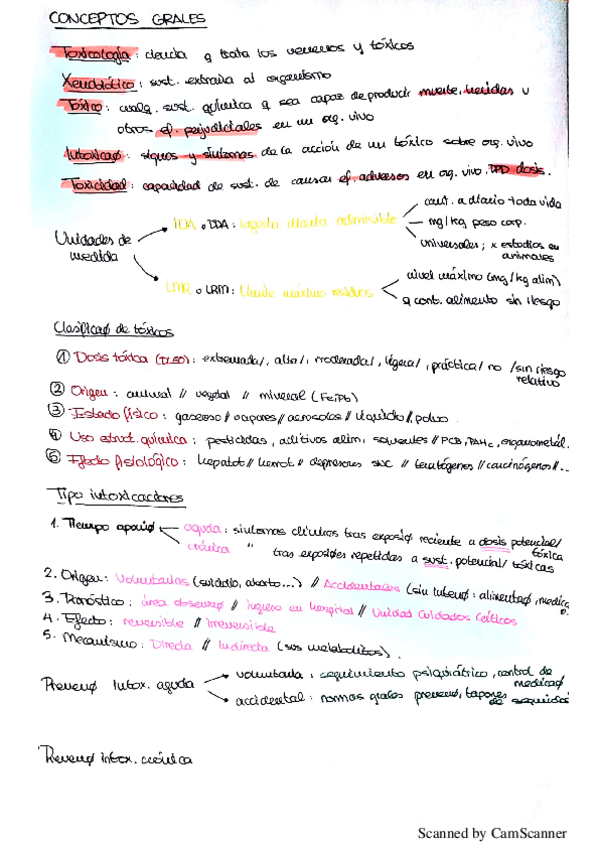 CONCEPTOS GRALES
Toxicología: ciencia q trata los venenos y tóxicos
Xenobiótico: sust. extraña al organismo
Tóxico: cualq. sust. química q sea capaz de producir muerte, heridas u
otros ef. perjudiciales en un org. vivo
Intoxicaø: signos y síntomas de la acción de un tóxico sobre org. vivo
Toxicidad: capacidad de sust. de causar ef. adversos en org. vivo. DPD dosis.
Unidades de medida
IDA o DDA: ingesta diaria admisible
cant. a diario toda vida
mg/kg peso corp.
universales; x estudios en animales
LMR o LRM: límite máximo residuos
nivel máximo (mg/kg alim)
q cont. alimento sin riesgo
Clasificaø de tóxicos
① Dosis tóxica (DL50): extremada/, alta/, moderada/, ligera/, práctica/ no /sin riesgo
relativo
② Origen: animal // vegetal // mineral (Fe,Pb)
③ Estado físico: gaseoso // vapores // aerosoles // líquido //, polvo
④ Uso estruct. química: pesticidas, aditivos alim, solventes // PCB, PAHc, organometál.
⑤ Efecto fisiológico: hepatot // hemot. // depresores SNC // teratógenos // carcinógenos //...
Tipo intoxicaciones
1. Tiempo apariø
aguda: síntomas clínicos tras exposiø reciente a dosis potencial/
tóxica
crónica " tras exposiøes repetidas a sust. potencial/ tóxicas
2. Origen: Voluntarias (suicidio, aborto...) // Accidentales (sin intenø: alimentaø, medicaø
3. Pronóstico: área observaø // ingreso en hospital // Unidad Cuidados Críticos
4. Efecto: reversible // Irreversible
5. Mecanismo: Directa // Indirecta (sus metabolitos).
Prevenø Intox. aguda
voluntaria: seguimiento psiquiátrico, control de
medicaø
accidental: normas grales prevenø, tapones
de seguridad
Prevenø intox. crónica
Scanned by CamScanner